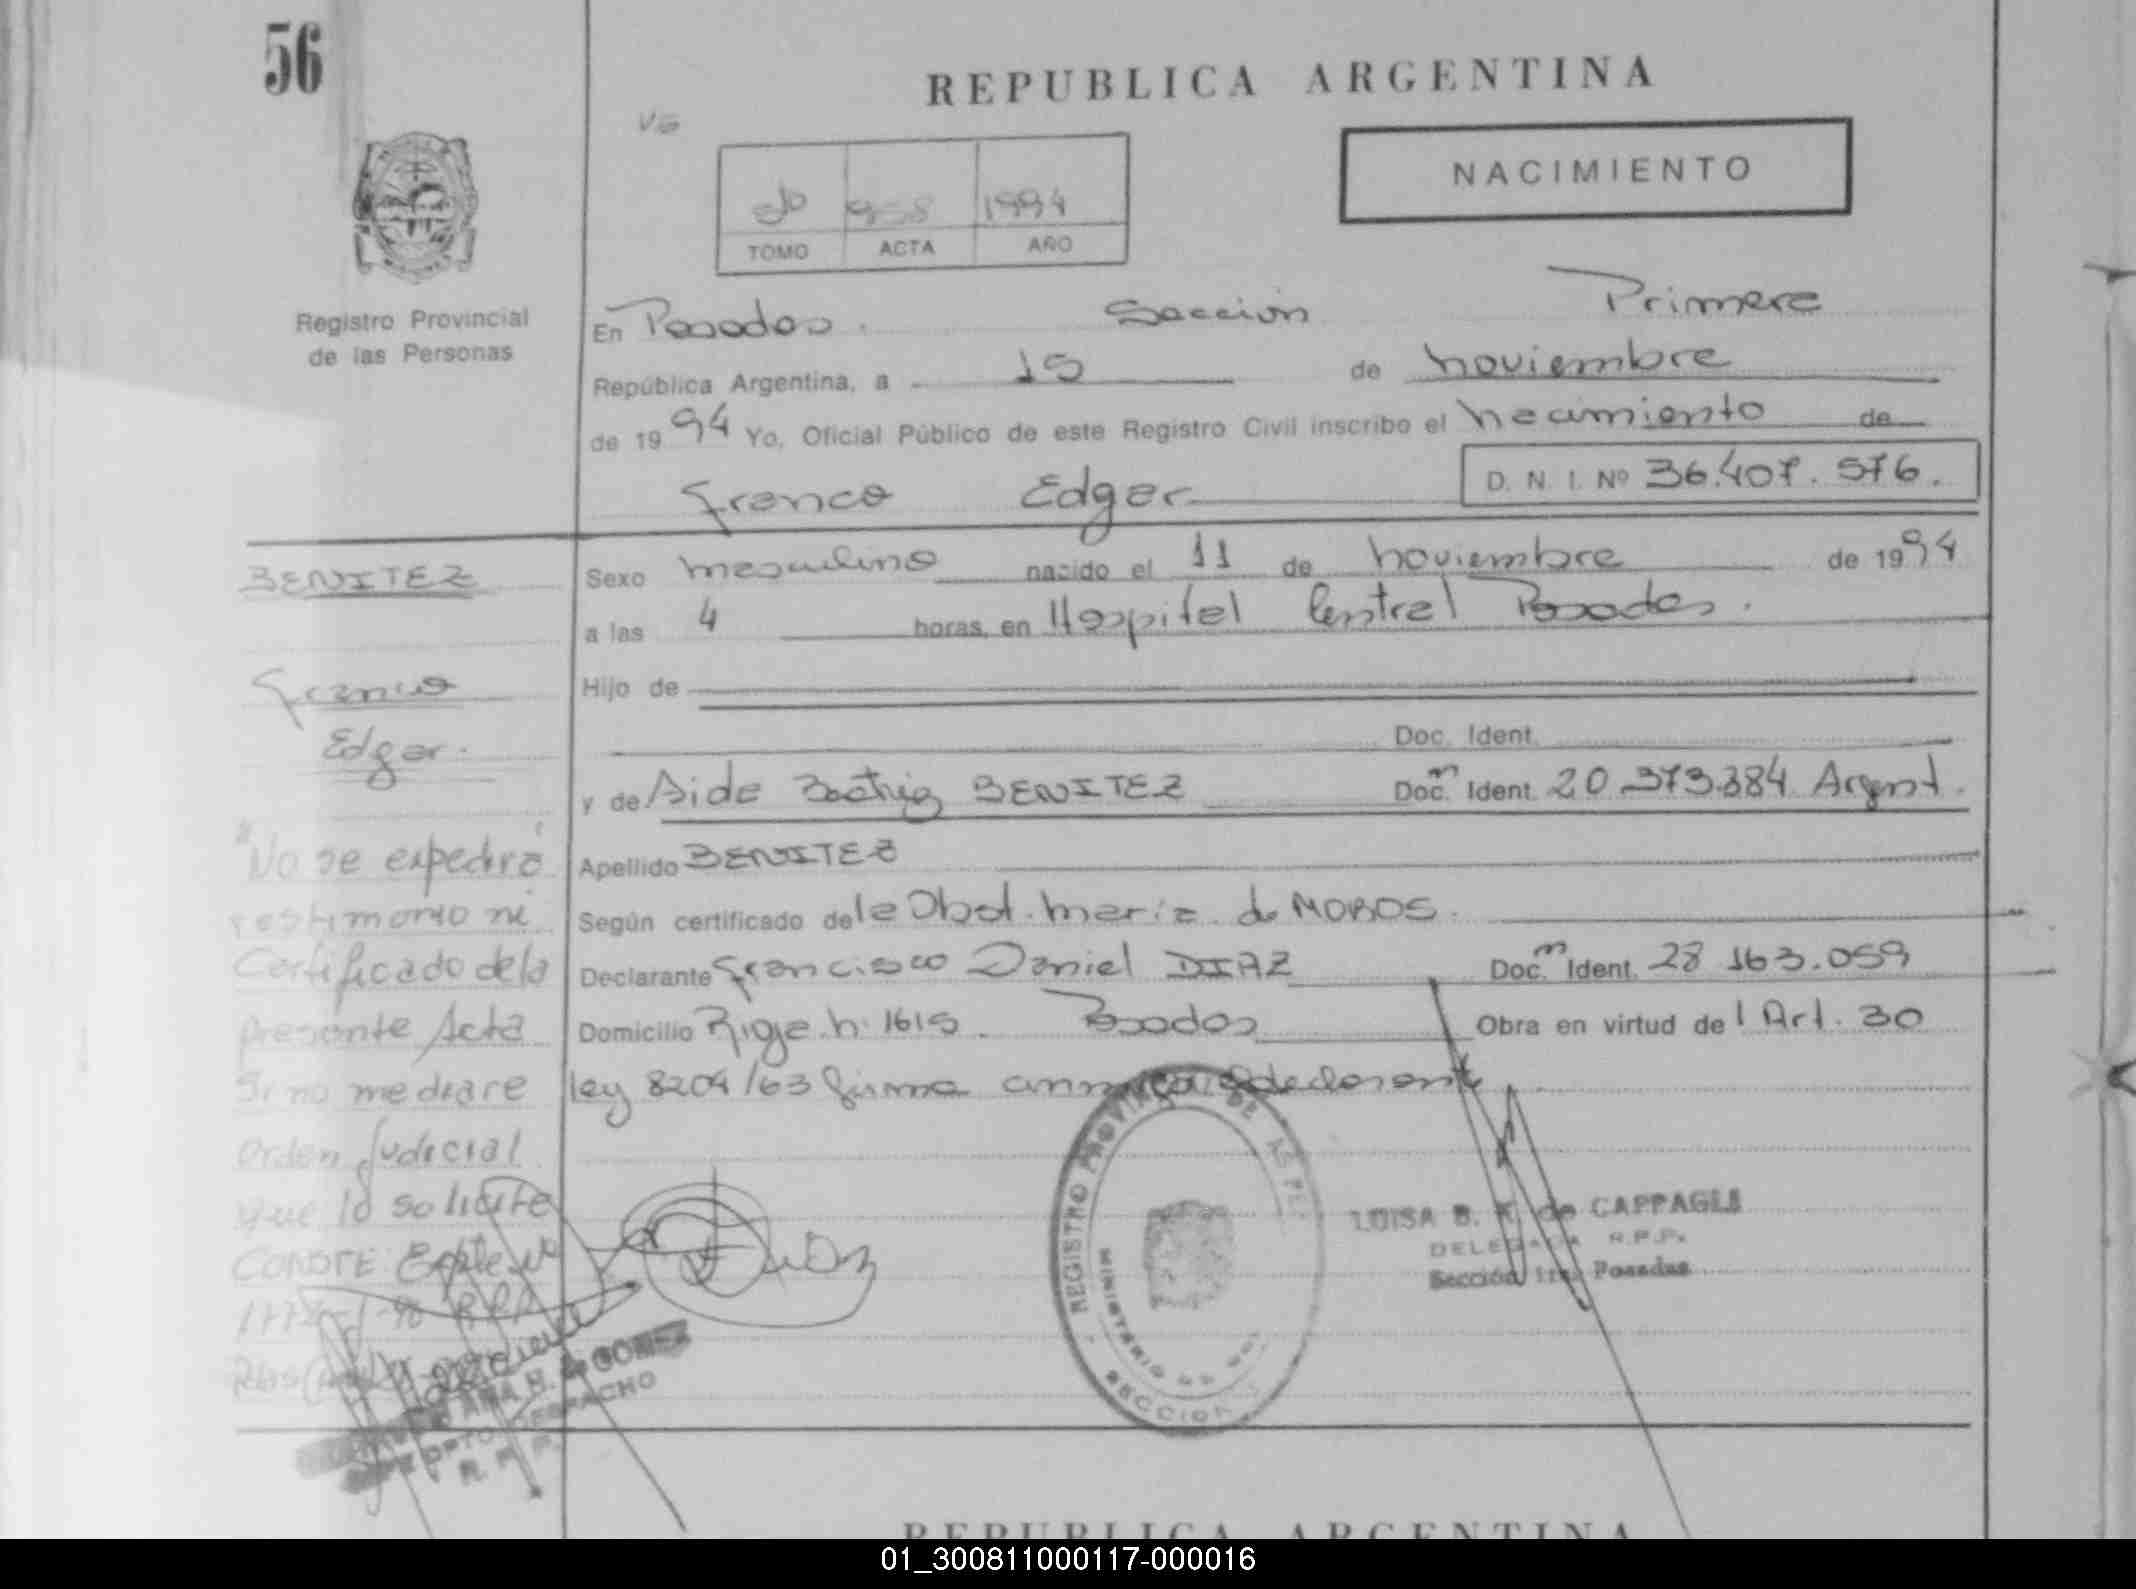 56
REPUBLICA ARGENTINA
NACIMIENTO
958 1994
TOMO ACTA AÑO
Registro Provincial
de las Personas
En Posadas. Sección Primera
República Argentina, a 15 de noviembre
de 1994 Yo, Oficial Público de este Registro Civil inscribo el nacimiento de
Franco Edgar D. N. I. Nº 36.407.576.
BENITEZ
Franco
Edgar.
Sexo masculino nacido el 11 de noviembre de 1994
a las 4 horas, en Hospital Central Posadas.
Hijo de
Doc. Ident.
y de Aide Beatriz BENITEZ Doc. Ident. 20.373.384 Argent.
Apellido BENITEZ
Según certificado de la Obst. Maria de MOBOS.
Declarante Francisco Daniel DIAZ Doc. Ident. 28 163.059
Domicilio Rioja n: 1615. Posadas Obra en virtud del Art. 30
ley 8204/63 firma declarante
"No se expedirá
testimonio ni
Certificado de la
presente Acta
Si no mediare
Orden Judicial
que lo solicite
CONSTE
Diaz
REGISTRO PROVINCIAL DE
MINISTERIO DE
SECCION
LUISA B. de CAPPAGLI
DELEGADA R.P.P.
Sección 1ra. Posadas
GOMEZ
DPTO. DESPACHO
R. P. P.
REPUBLICA ARGENTINA
01_300811000117-000016